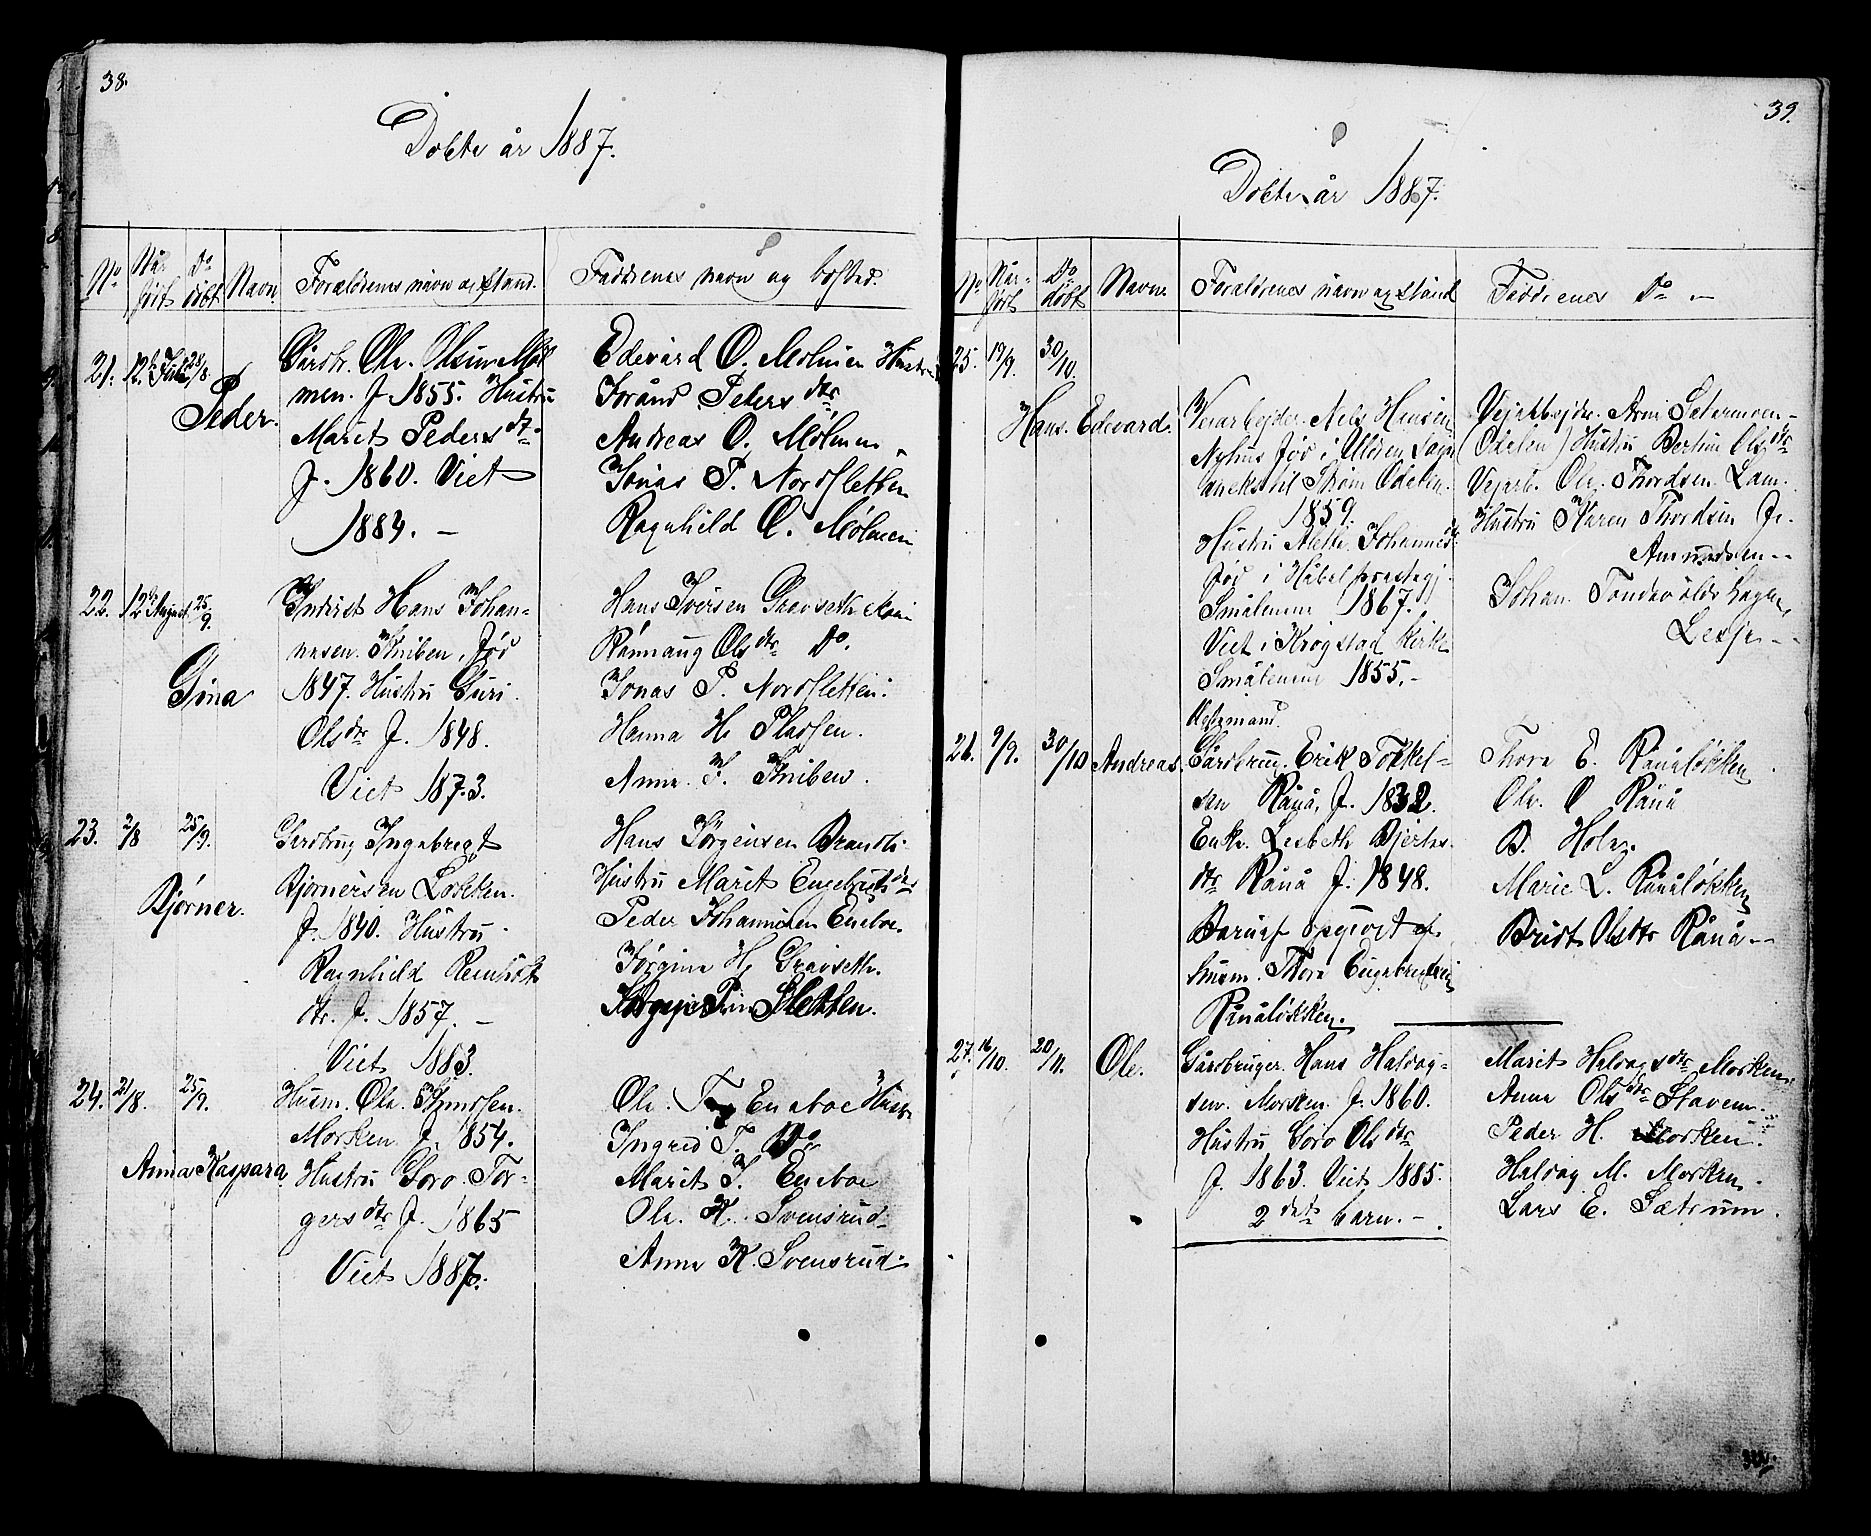 38.
Døbte år 1887.
No Når født Do døbt Navn Forældrenes navn og stand. Faddrenes navn og bosted.
21. 12te Juli 28/8. Peder.
Gårdbr. Ole Olsen Møl
men. f. 1855. Hustru
Marit Peders dtr.
f. 1860. Viet
1884. –
Edevard O. Mølmen Hustru
Jorånd Peters dtr
Andreas O. Mølmen
Jonas P. Nordsletten
Ragnhild O. Mølmen
22. 12te August 25/9. Gina
Inderst Hans Johan-
nesen Kniben, Fød
1847. Hustru Guri
Olsdtr f. 1848.
Viet 1873.
Hans Iversen Gravseth
Rønnaug Olsdtr Do.
Jonas P. Nordsletten.
Hanna H. Pladsen.
Anne J. Kniben.
23. 2/8 25/9. Bjørner.
Gårdbrug Ingebregt
Bjørnersen Løkken.
f. 1840. Hustru
Ragnhild
dtr. f. 1857. –
Viet 1883.
Hans Jørgensen Brandli
Hustru Marit Engebrets dtr
Peder Johannesen Eneboe.
Jørgine H. Gravseth.
Sletten.
24. 21/8. 25/9. Anna Kaspara
Husm. Ole Knudsen.
Morken f. 1854.
Hustru Goro Tor-
gersdtr f. 1865
Viet 1887.
Ole T. Eneboe Hustr
Ingrid T. Do
Marit T. Eneboe
Ole K. Svensrud
Anne K. Svensrud
39.
Døbte år 1887.
No Når født Do døbt Navn. Forældrenes navn og stand Faddrenes Do –
25. 19/9. 30/10. Hans Edevard.
Veiarbejder Nels Hansen
Nyhus Fød i Ullern Sogn
aneks til Strøm Odalen.
1859.
Hustru Mette Johannesdtr
Fød i Håbøl præstegj.
Smålenene 1867.
Viet i Krogstad Kirke
Smålenene 1855.–
Vejarbejdr. Arne Sætermoen –
(Odalen) Hustru Bertine Olsdtr
Vejarb. Ole Thordsen Lam.
Hustru Karen Thordsen F.
Amundsen –
Johan
Lesje –
26. 9/9. 30/10 Andreas.
Gårdbrug. Erik Tokkel-
sen Rånå, f. 1832.
Enke Lesbeth Bjerts.
dtr Rånå f. 1848.
Barnef opgivet af
husm. Thore Engebregtsen
Rånåløkken.
Thore E. Rånåløkken
Ole O Rånå
B. Holee
Marie L. Rånåløkken
Bridt Olsdtr Rånå –
27. 16/10. 20/11. Ole.
Gårdbruger Hans Haldog-
sen Morken f. 1860.
Hustru Goro Olsdtr
f. 1863. Viet 1885.
2det barn. –
Marit Haldogsdtr Morken
Anne Olsdtr Stavem.
Peder H. Morken.
Haldog M. Morken.
Lars E. Sætrum.